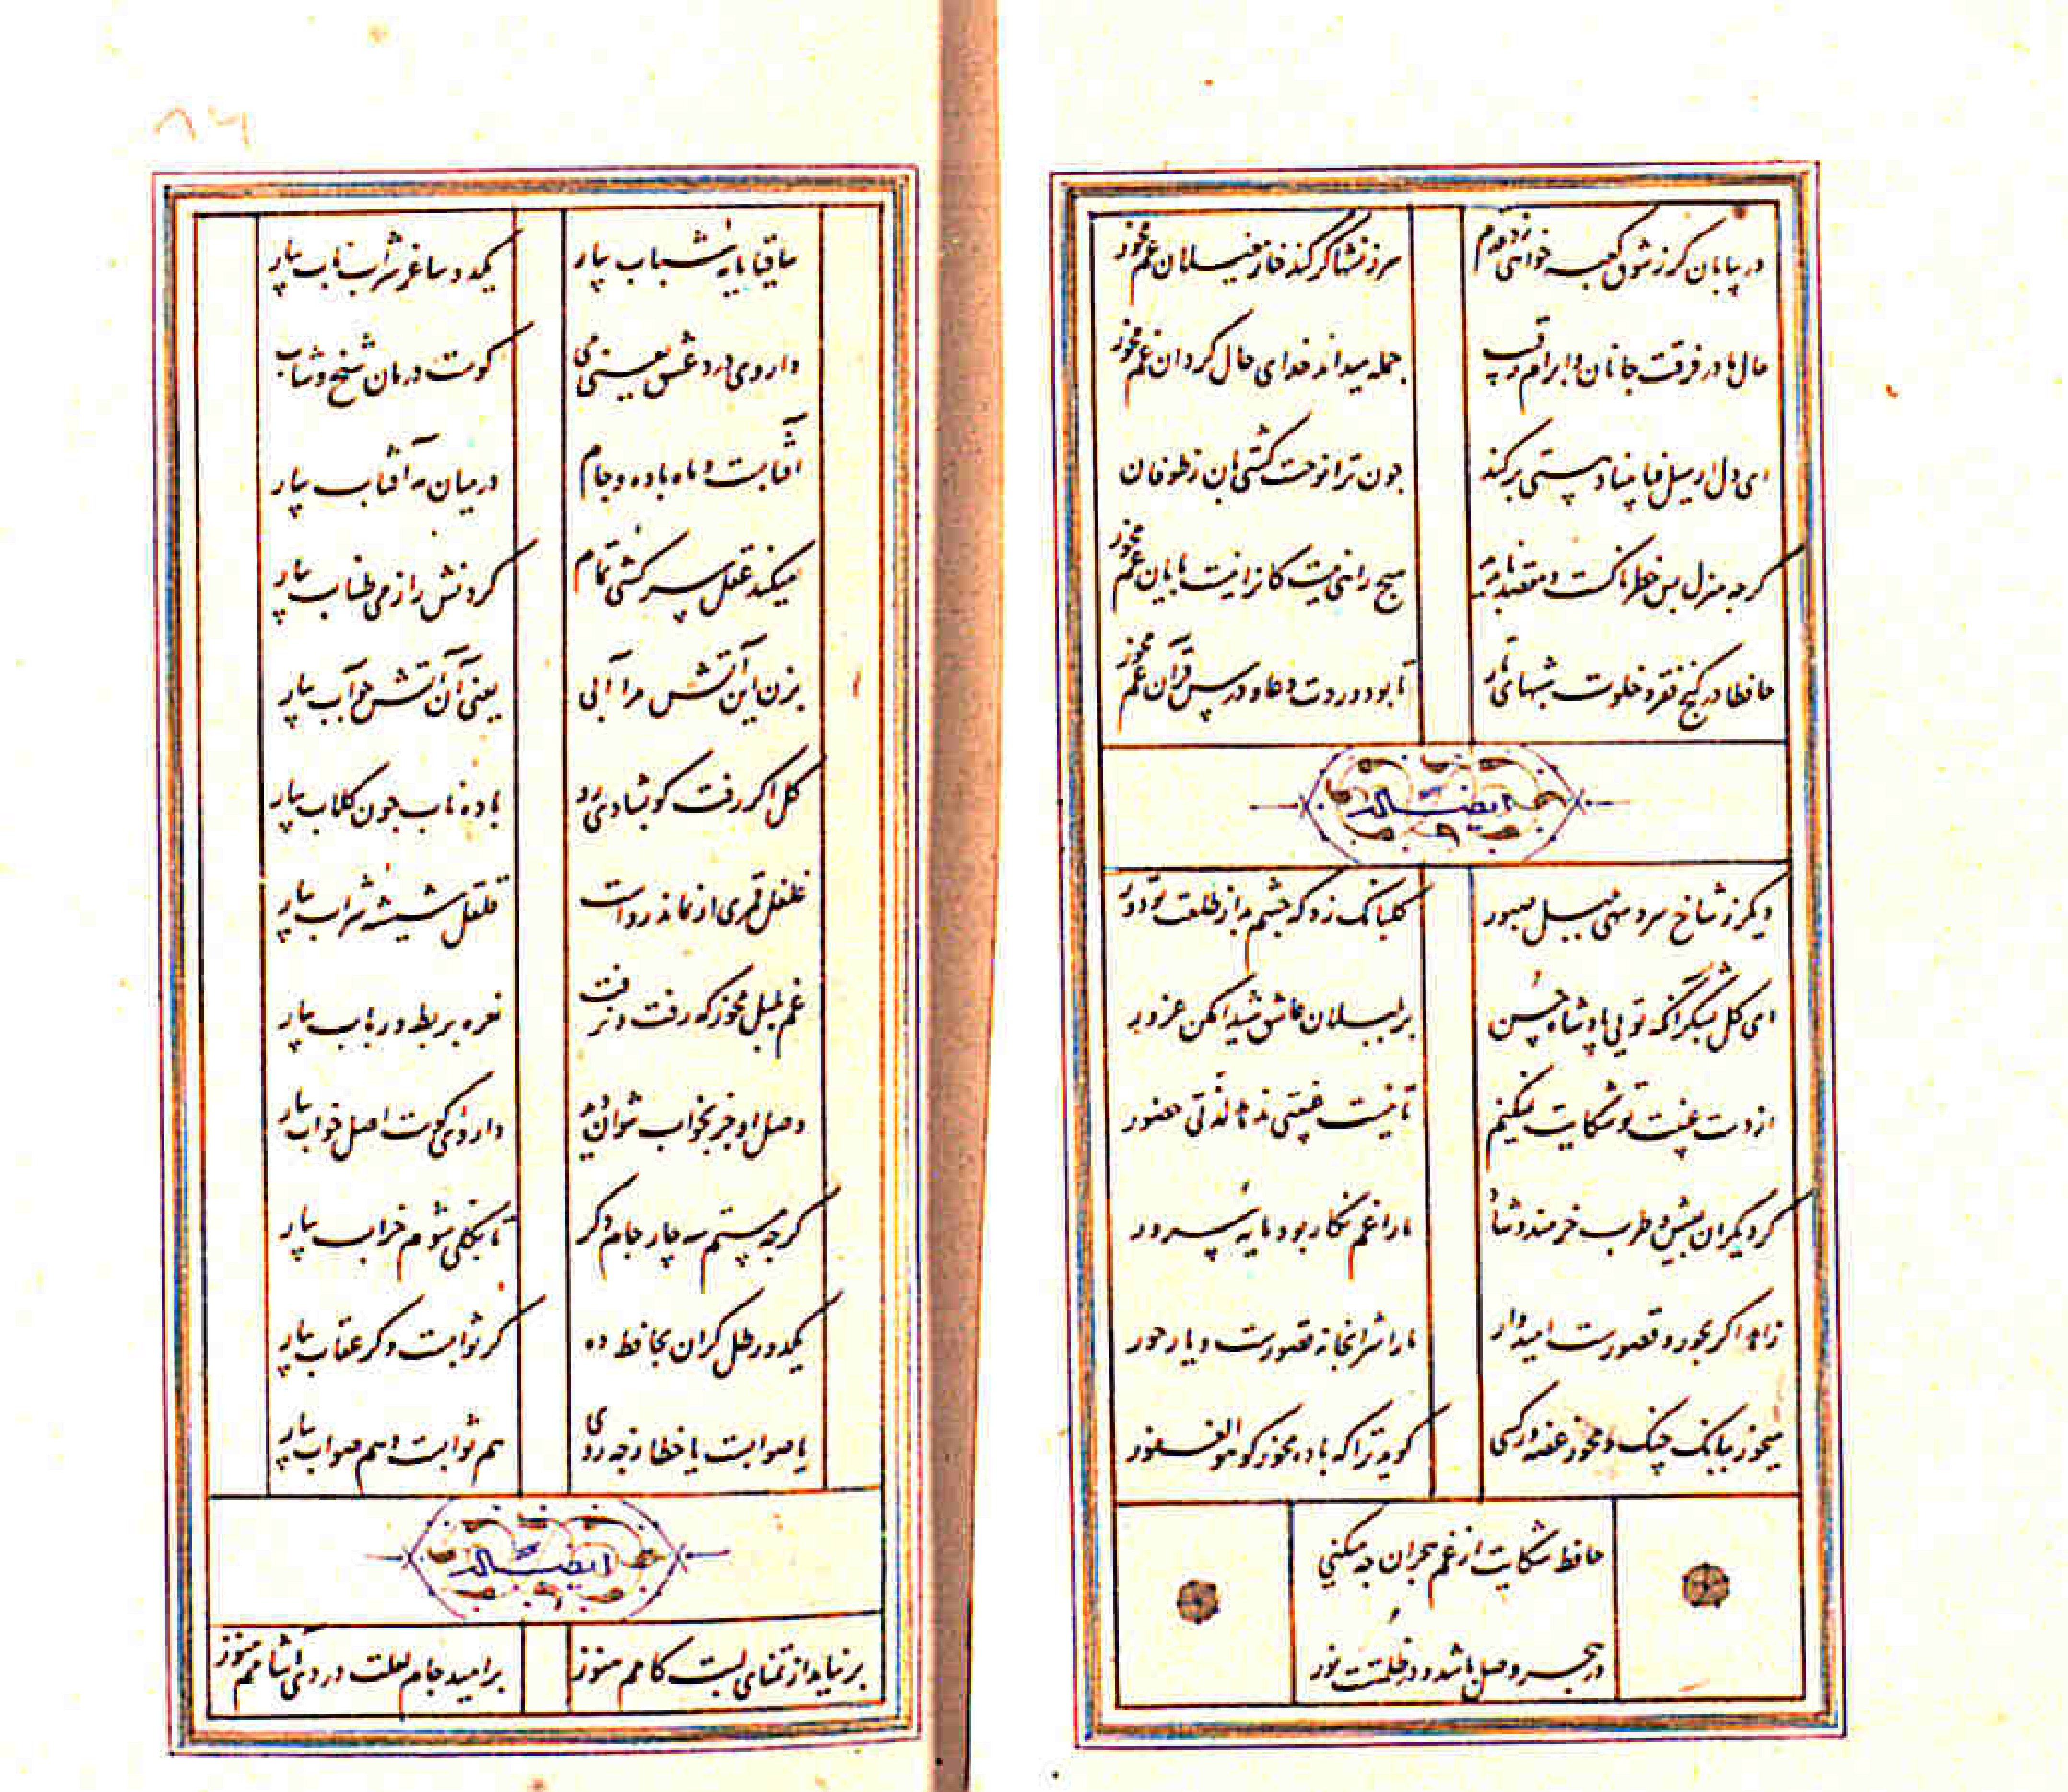 در بیابان گر ز شوق کعبه خواهی زد قدم
سرزنشها گر کند خار مغیلان غم مخور
حال ما در فرقت جانان و ابرام رقیب
جمله میداند خدای حال گردان غم مخور
ای دل ار سیل فنا بنیاد هستی بر کند
چون ترا نوحست کشتی بان ز طوفان
گرچه منزل بس خطرناکست و مقصد ناپدید
هیچ راهی نیست کانرا نیست پایان غم مخور
حافظا در کنج فقر و خلوت شبهای تار
تا بود وردت دعا و درس قرآن غم مخور
ایضا له
دیگر ز شاخ سرو سهی بلبل صبور
گلبانگ زد که چشم بد از طلعت تو دور
ای گل بشکر آنکه تویی پادشاه حسن
بر بلبلان عاشق شیدا مکن غرور
از دست غیبت تو شکایت نمیکنم
تا نیست غیبتی ندهد لذتی حضور
گر دیگران بعیش و طرب خرمند و شاد
ما را غم نگار بود مایه سرور
زاهد اگر بحور و قصورست امیدوار
ما را شرابخانه قصورست و یار حور
میخور ببانگ چنگ و مخور غصه ور کسی
گوید ترا که باده مخور گو هو الغفور
حافظ شکایت از غم هجران چه میکنی
در هجر وصل باشد و در ظلمتست نور
۸۶
ساقیا مایه شباب بیار
یکدو ساغر شراب ناب بیار
داروی درد عشق یعنی می
کوست درمان شیخ و شاب بیار
آفتابست و ماه باده و جام
در میان مه آفتاب بیار
میکند عقل سرکشی تمام
گردنش را ز می طناب بیار
بزن این آتش مرا آبی
یعنی آن آتش چو آب بیار
گل اگر رفت گو بشادی رو
باده ناب چون گلاب بیار
غلغل قمری ار نماند رواست
قلقل شیشه شراب بیار
غم بلبل مخور که رفت و برفت
نغره بربط و رباب بیار
وصل او جز بخواب نتوان دید
داروی کوست اصل خواب بیار
گرچه مستم سه چار جام دگر
تا بکلی شوم خراب بیار
یکدو رطل گران بحافظ ده
گر ثوابست و گر عقاب بیار
یا صوابست یا خطا
هم ثوابست و هم صواب بیار
ایضا له
بر نیامد از تمنای لبت کامم هنوز
بر امید جام لعلت دردی آشامم هنوز